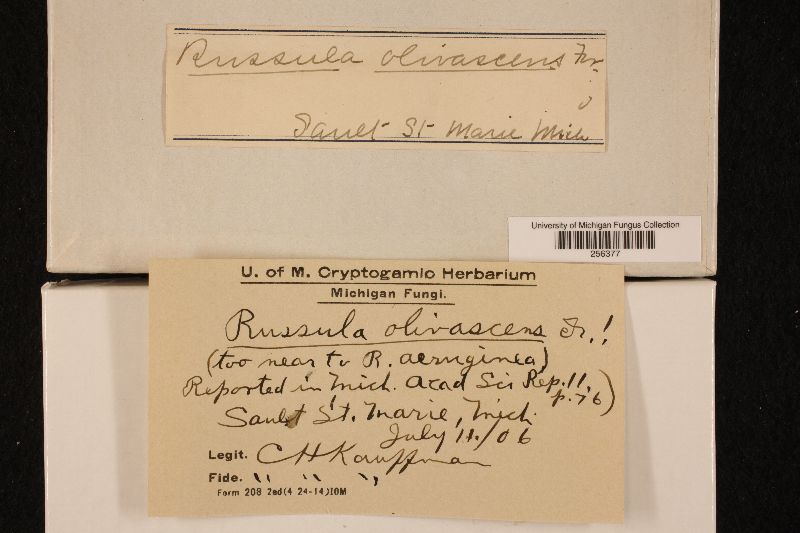 Russula olivascens Fr.
Sault St Marie Mich
University of Michigan Fungus Collection
256377
U. of M. Cryptogamic Herbarium
Michigan Fungi.
Russula olivascens Fr.!
(too near to R. aeruginea)
Reported in Mich. Acad Sci Rep. 11,
p. 76)
Sault St. Marie, Mich.
July 11/06
Legit. CHKauffman
Fide. " " "
Form 208 2ad(4 24-14)10M